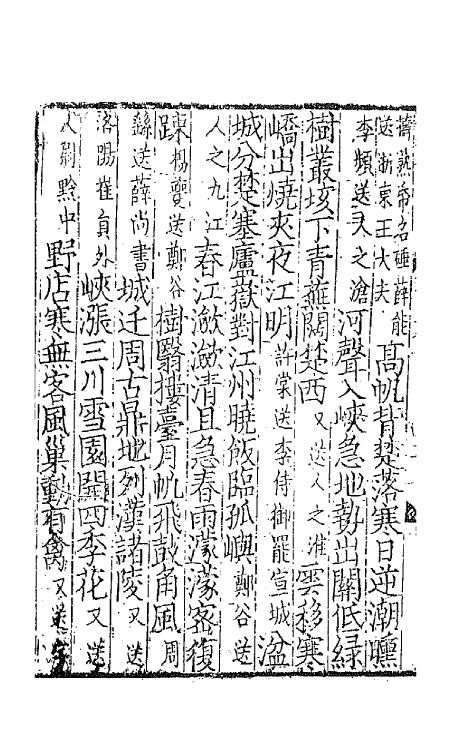 擣熟帝名硾薛能送浙東王大夫高帆背楚落寒日逆潮曛
李頻送人之滄河聲入峽急地勢出關低綠
樹叢垓下青蕪闊楚西又送人之淮雲移寒
嶠出燒夾夜江明許棠送李侍御罷宣城湓
城分楚塞廬嶽對江州曉飯臨孤嶼鄭谷送
人之九江春江瀲瀲清且急春雨濛濛密復
踈楊夔送鄭谷樹翳摟臺月帆飛鼓角風周
繇送薛尚書城迁周古鼎地列漢諸陵又送
洛陽崔貟外峽漲三川雪園開四季花又送
人尉黔中野店寒無客風巢動有禽又送